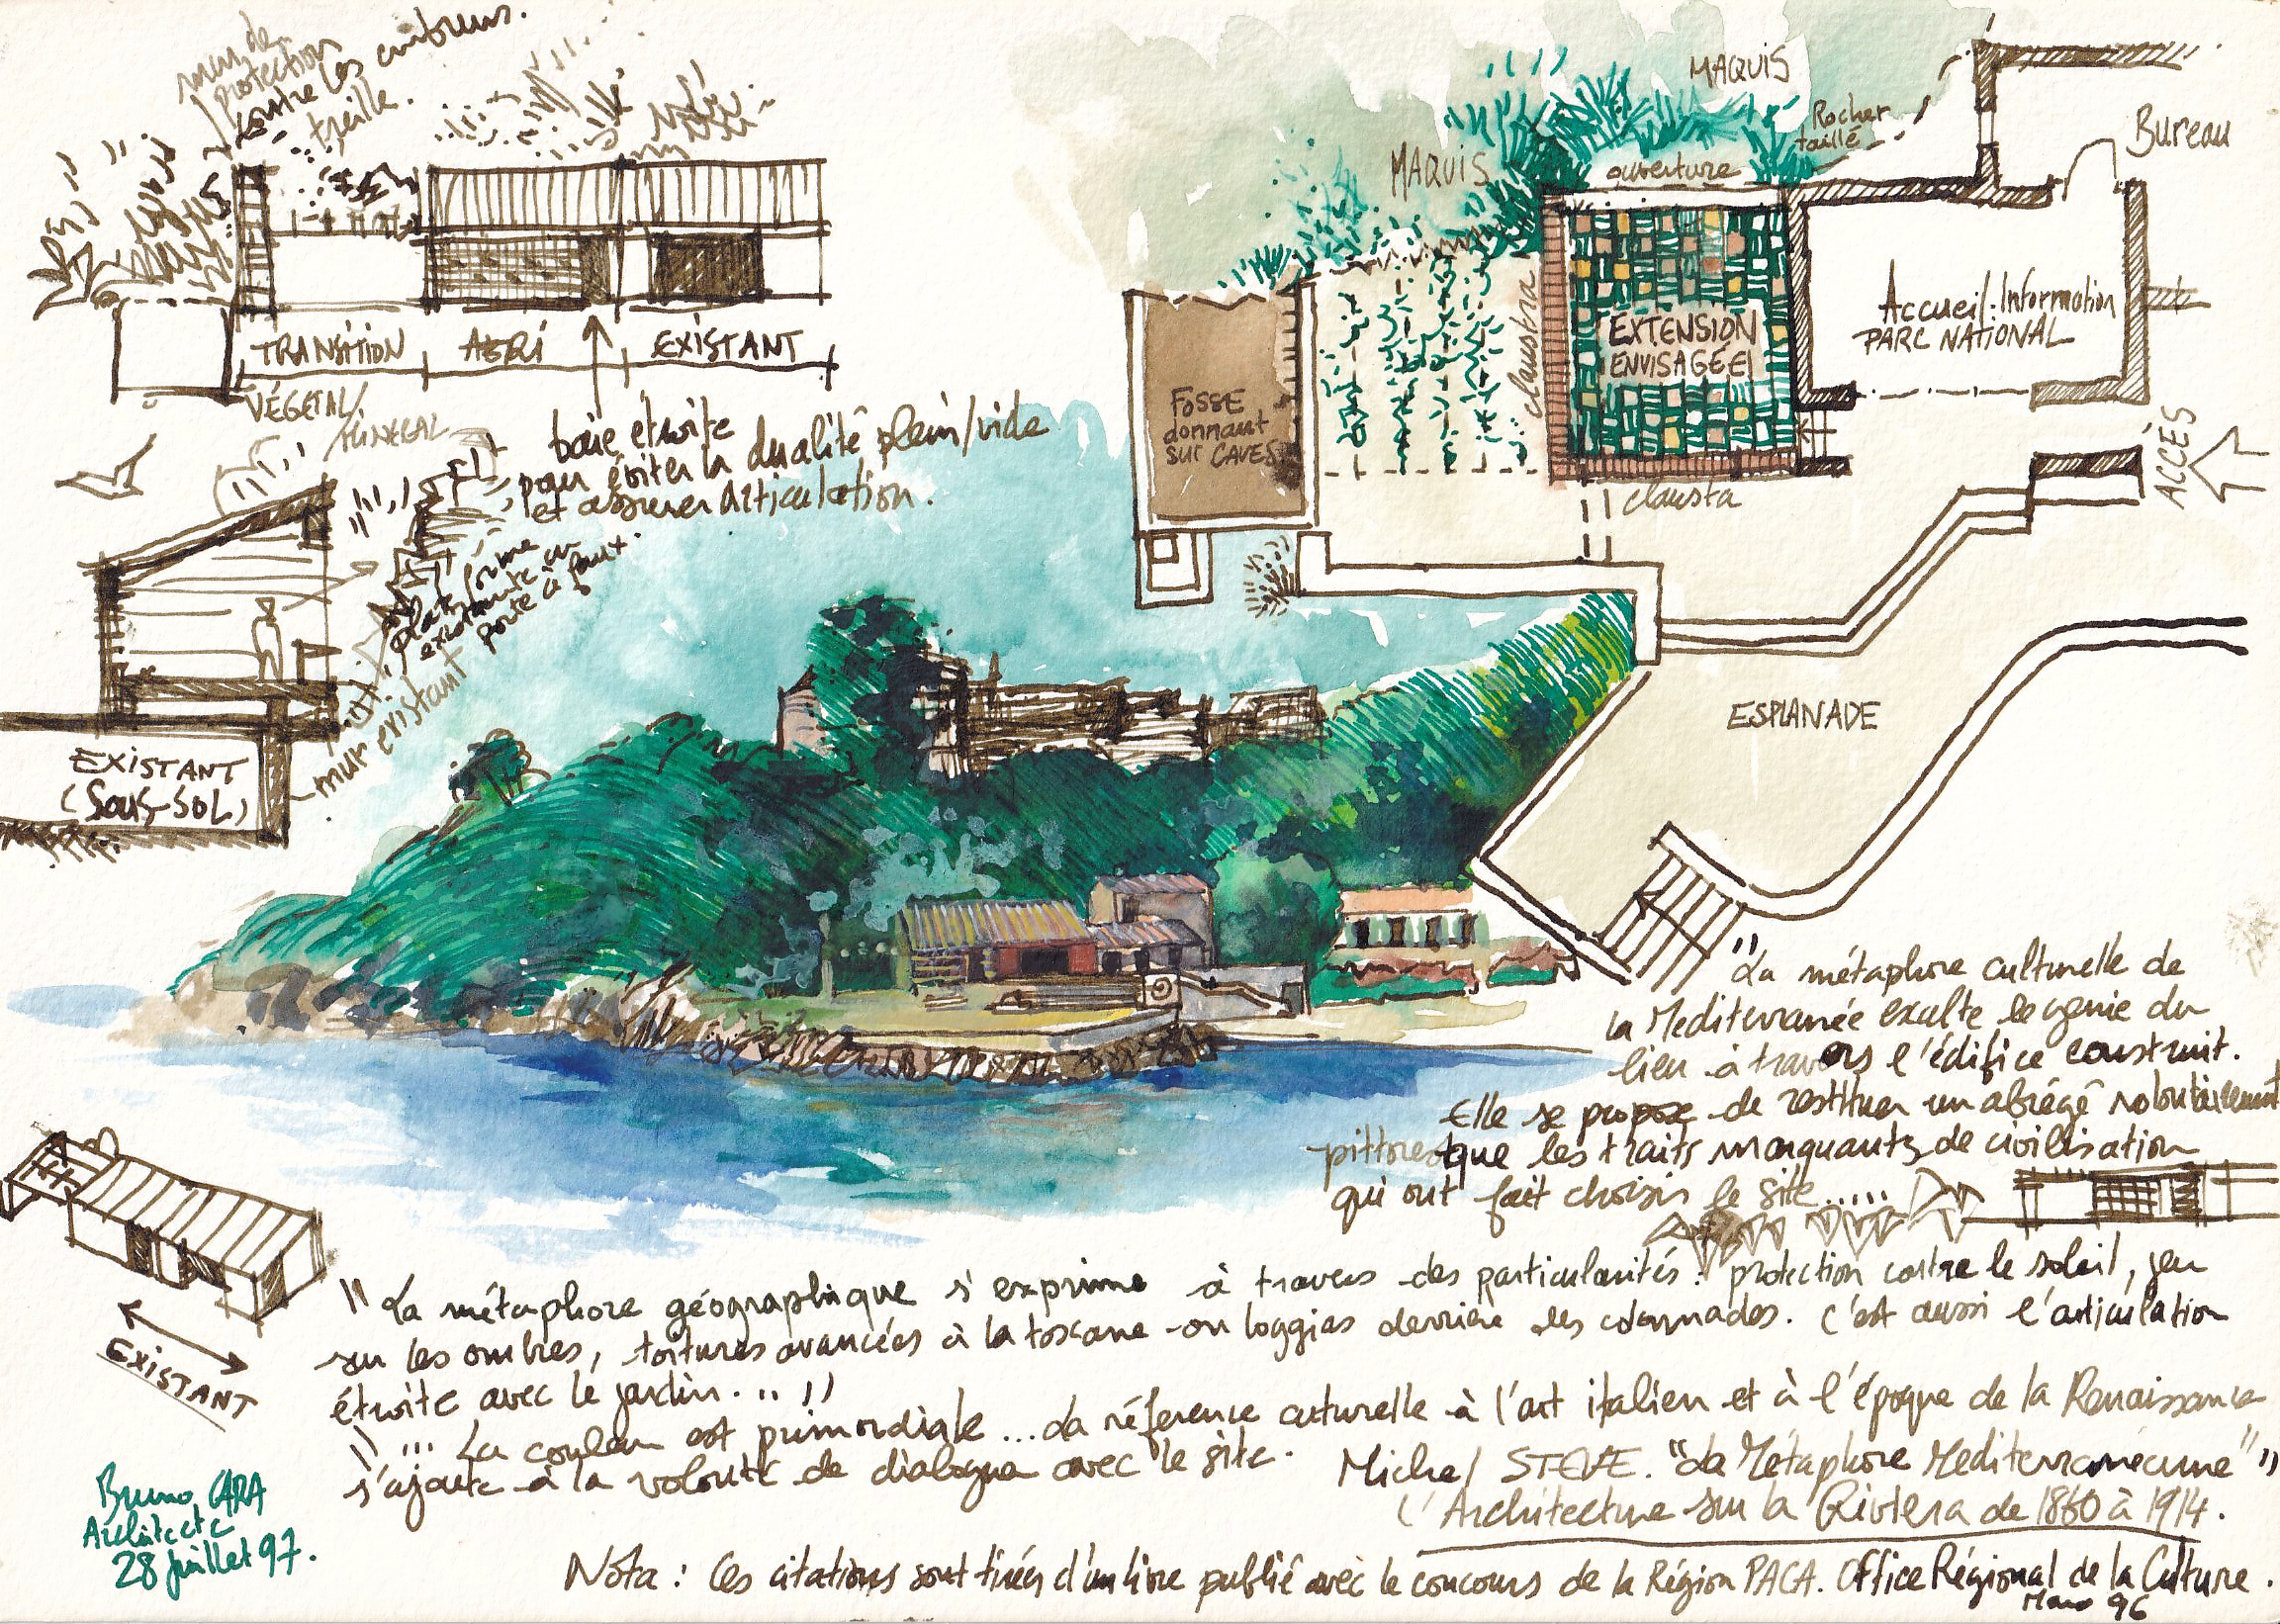 mur de
protection
contre les embruns.
treille.
TRANSITION
ABRI
EXISTANT
VÉGÉTAL/
MINERAL
baie étroite
pour éviter la dualité plein/vide
et assurer articulation.
plate forme
existante en
porte à faux.
mur existant
EXISTANT
(SOUS-SOL)
MAQUIS
MAQUIS
Rocher
taillé
ouverture
Bureau
claustra
EXTENSION
ENVISAGÉE
Accueil.Information
PARC NATIONAL
FOSSE
donnant
sur CAVES
clausta
ACCÈS
ESPLANADE
"La métaphore culturelle de
la Mediterranée exalte le génie du
lieu à travers l'édifice construit.
Elle se propose de restituer un abrégé volontairement
pittoresque les traits marquants de civilisation
qui ont fait choisir le site.....
EXISTANT
"La métaphore géographique s'exprime à travers des particularités : protection contre le soleil, jeu
sur les ombres, toitures avancées à la toscane ou loggias derrière des colonnades. C'est aussi l'articulation
étroite avec le jardin... "
"... La couleur est primordiale ... La référence culturelle à l'art italien et à l'époque de la Renaissance
s'ajoute à la volonté de dialogue avec le site.
Michel STEVE. "La Métaphore Mediterranéenne"
L'Architecture sur la Riviera de 1860 à 1914.
Bruno CARA
Architecte
28 Juillet 97.
Nota : Ces citations sont tirées d'un livre publié avec le concours de la Région PACA. Office Régional de la Culture.
Mars 96